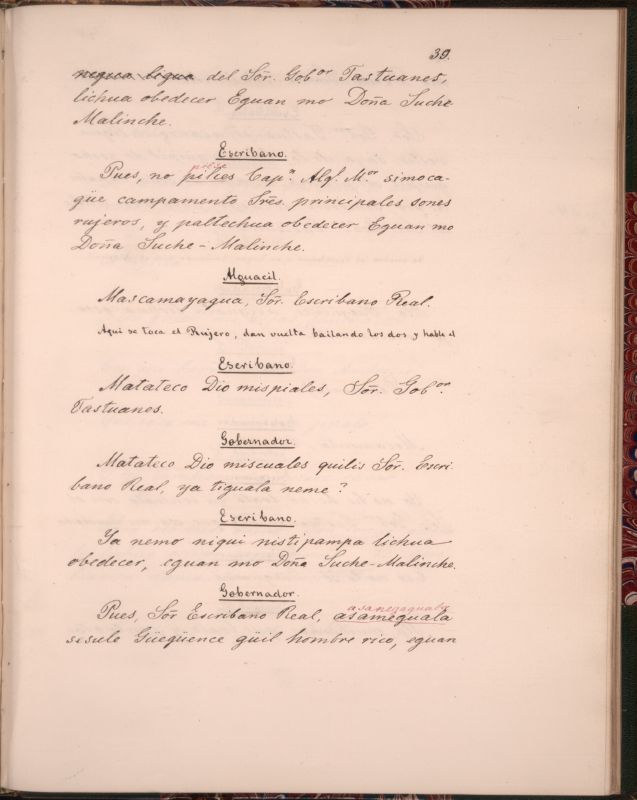 39.
niqua ligua del Sõr. Gob.or Tastuanes,
lichua obedecer Eguan mo Doña Suche
Malinche.
Escribano.
polise
Pues, no pilices Cap.n Alg. M.or simoca-
güe campamento Sres. principales sones
rujeros, y paltechua obedecer Eguan mo
Doña Suche-Malinche.
Alguacil.
Mascamayagua, Sõr. Escribano Real.
Aqui se toca el Rujero, dan vuelta bailando los dos y habla el
Escribano.
Matateco Dio mispiales, Sõr. Gob.or
Tastuanes.
Gobernador.
Matateco Dio miscuales quilis Sõr. Escri-
bano Real, ya tiguala neme?
Escribano.
Ya nemo niqui nistipampa lichua
obedecer, eguan mo Doña Suche-Malinche.
Gobernador.
asanezaguala
Pues, Sõr Escribano Real, asameguala
sesule Güegüence güil hombre rico, eguan